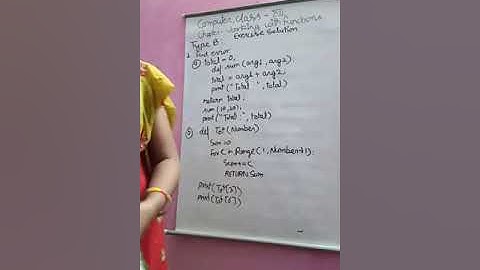 Computer, class - XII,
Chapter: Working with Functions
Exercise Solution
Type B:
2. Find error
ⓐ total = 0,
def sum (arg1, arg2):
total = arg1 + arg2
print ("Total : ", total)
return total,
sum (10, 20),
print ("Total :", total)
ⓑ def Tot (Number)
Sum = 0
For C in Range (1, Number+1):
Sum += C
RETURN Sum
print (Tot[3])
print (Tot[6])